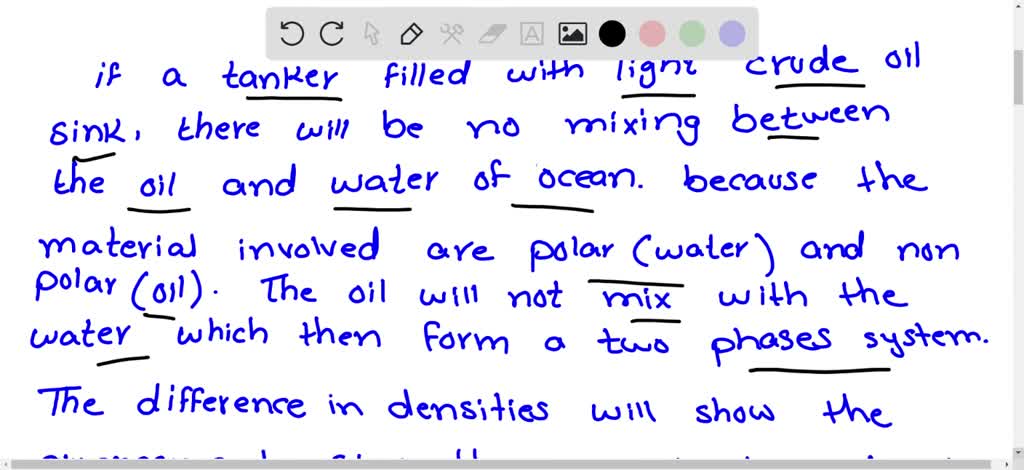 if a tanker filled with light crude oil
sink, there will be no mixing between
the oil and water of ocean. because the
material involved are polar (water) and non
polar (oil). The oil will not mix with the
water which then form a two phases system.
The difference in densities will show the